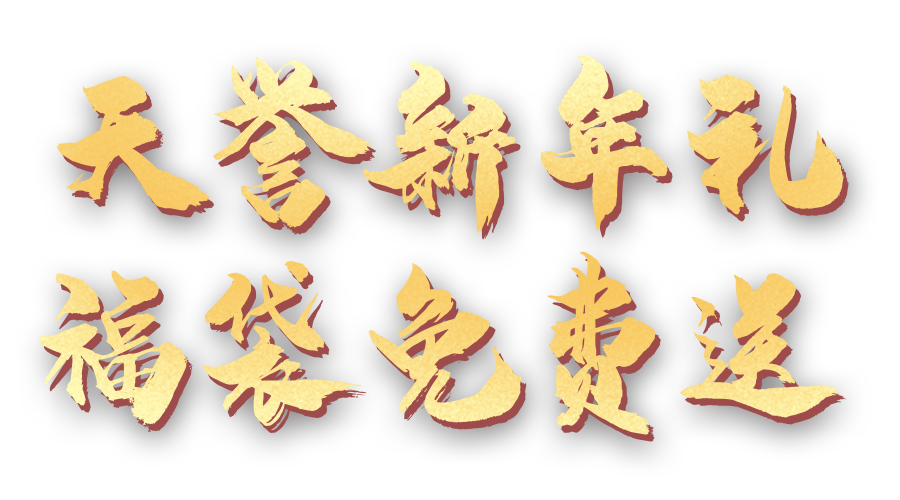 天誉新年礼
福袋免费送